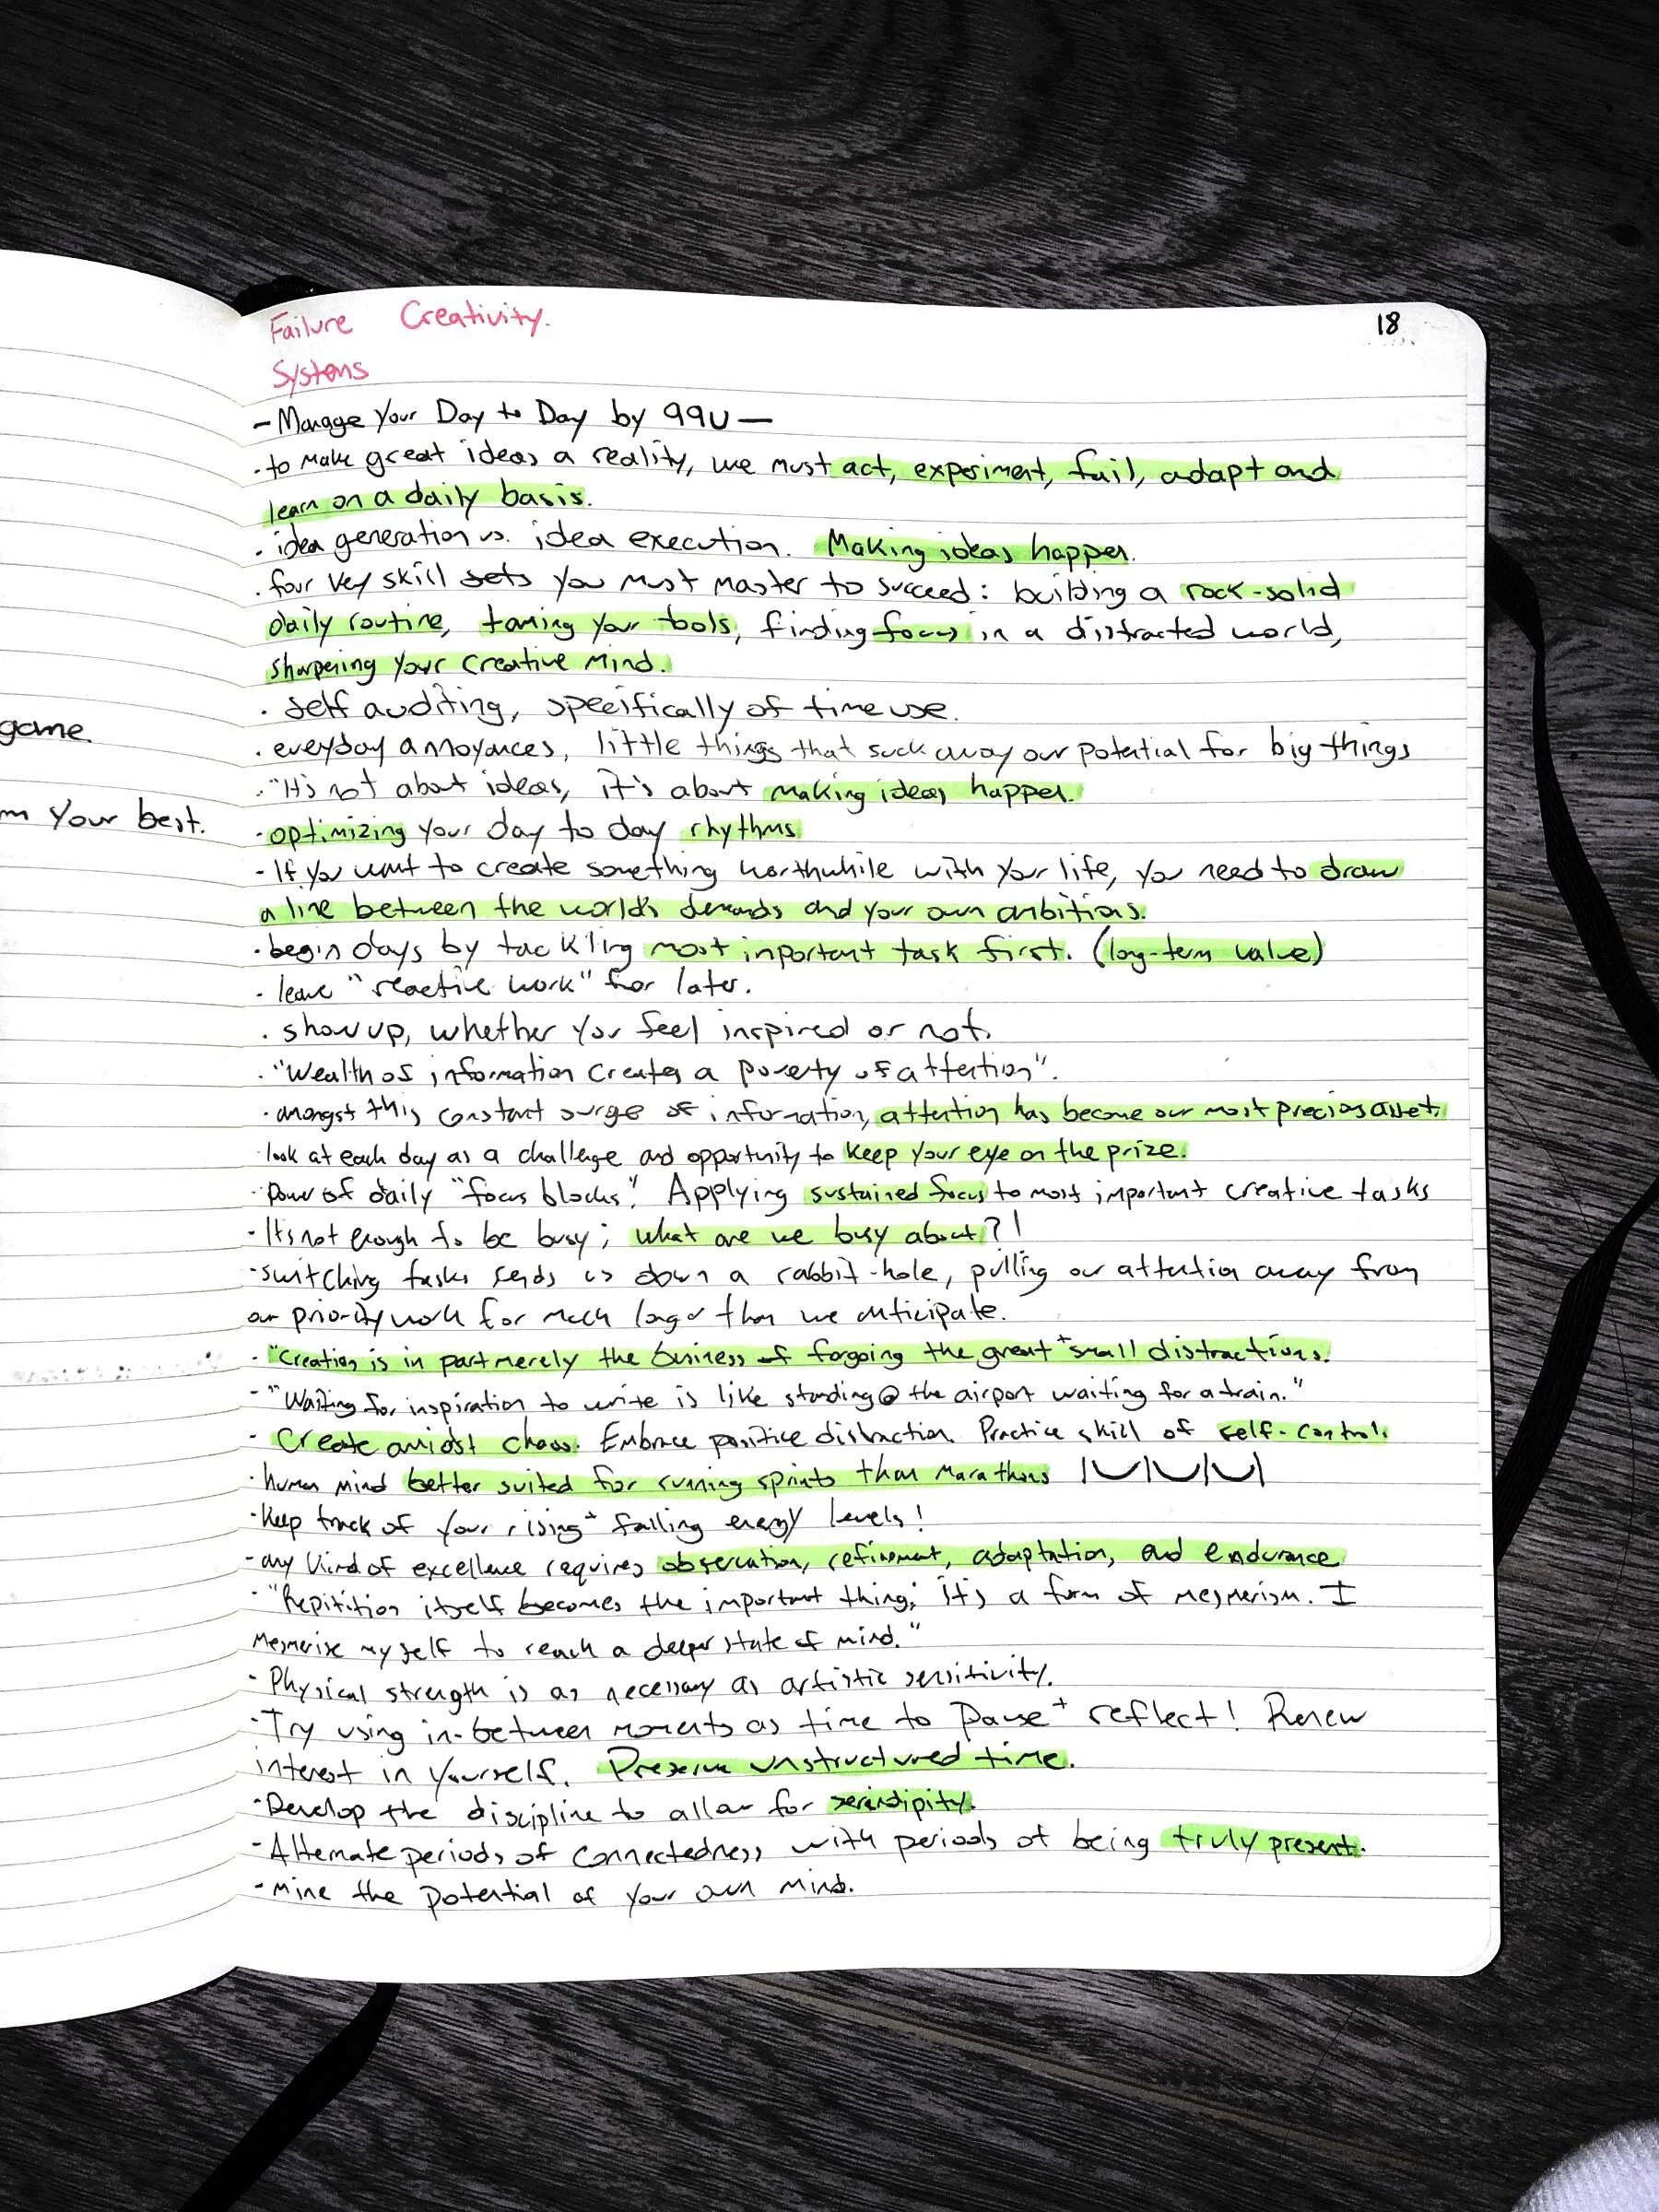 game.
m your best.
Failure Creativity.
18
Systems
- Manage Your Day to Day by 99U -
· to make great ideas a reality, we must act, experiment, fail, adapt and
learn on a daily basis.
· idea generation vs. idea execution. Making ideas happen.
· four key skill sets you must master to succeed: building a rock-solid
daily routine, taming your tools, finding focus in a distracted world,
sharpening your creative mind.
· self auditing, specifically of time use.
· everyday annoyances, little things that suck away our potential for big things
· "It's not about ideas, it's about making ideas happen.
· optimizing your day to day rhythms
- If you want to create something worthwhile with your life, you need to draw
a line between the world's demands and your own ambitions.
· begin days by tackling most important task first. (long-term value)
· leave "reactive work" for later.
· show up, whether you feel inspired or not.
· "Wealth of information creates a poverty of attention".
· amongst this constant surge of information, attention has become our most precious asset.
· look at each day as a challenge and opportunity to keep your eye on the prize.
· Power of daily "focus blocks". Applying sustained focus to most important creative tasks
· It's not enough to be busy; what are we busy about?!
· switching tasks sends us down a rabbit-hole, pulling our attention away from
our priority work for much longer than we anticipate.
· "Creation is in part merely the business of forgoing the great + small distractions.
- "Waiting for inspiration to write is like standing @ the airport waiting for a train."
- Create amidst chaos. Embrace positive distraction. Practice skill of self-control.
· human mind better suited for running sprints than marathons
· Keep track of your rising + falling energy levels!
- any kind of excellence requires observation, refinement, adaptation, and endurance
· "Repitition itself becomes the important thing; it's a form of mesmerism. I
mesmerize myself to reach a deeper state of mind."
- Physical strength is as necessary as artistic sensitivity.
· Try using in-between moments as time to pause + reflect! Renew
interest in yourself. Preserve unstructured time.
· Develop the discipline to allow for serendipity.
- Alternate periods of connectedness with periods of being truly present.
- Mine the potential of your own mind.